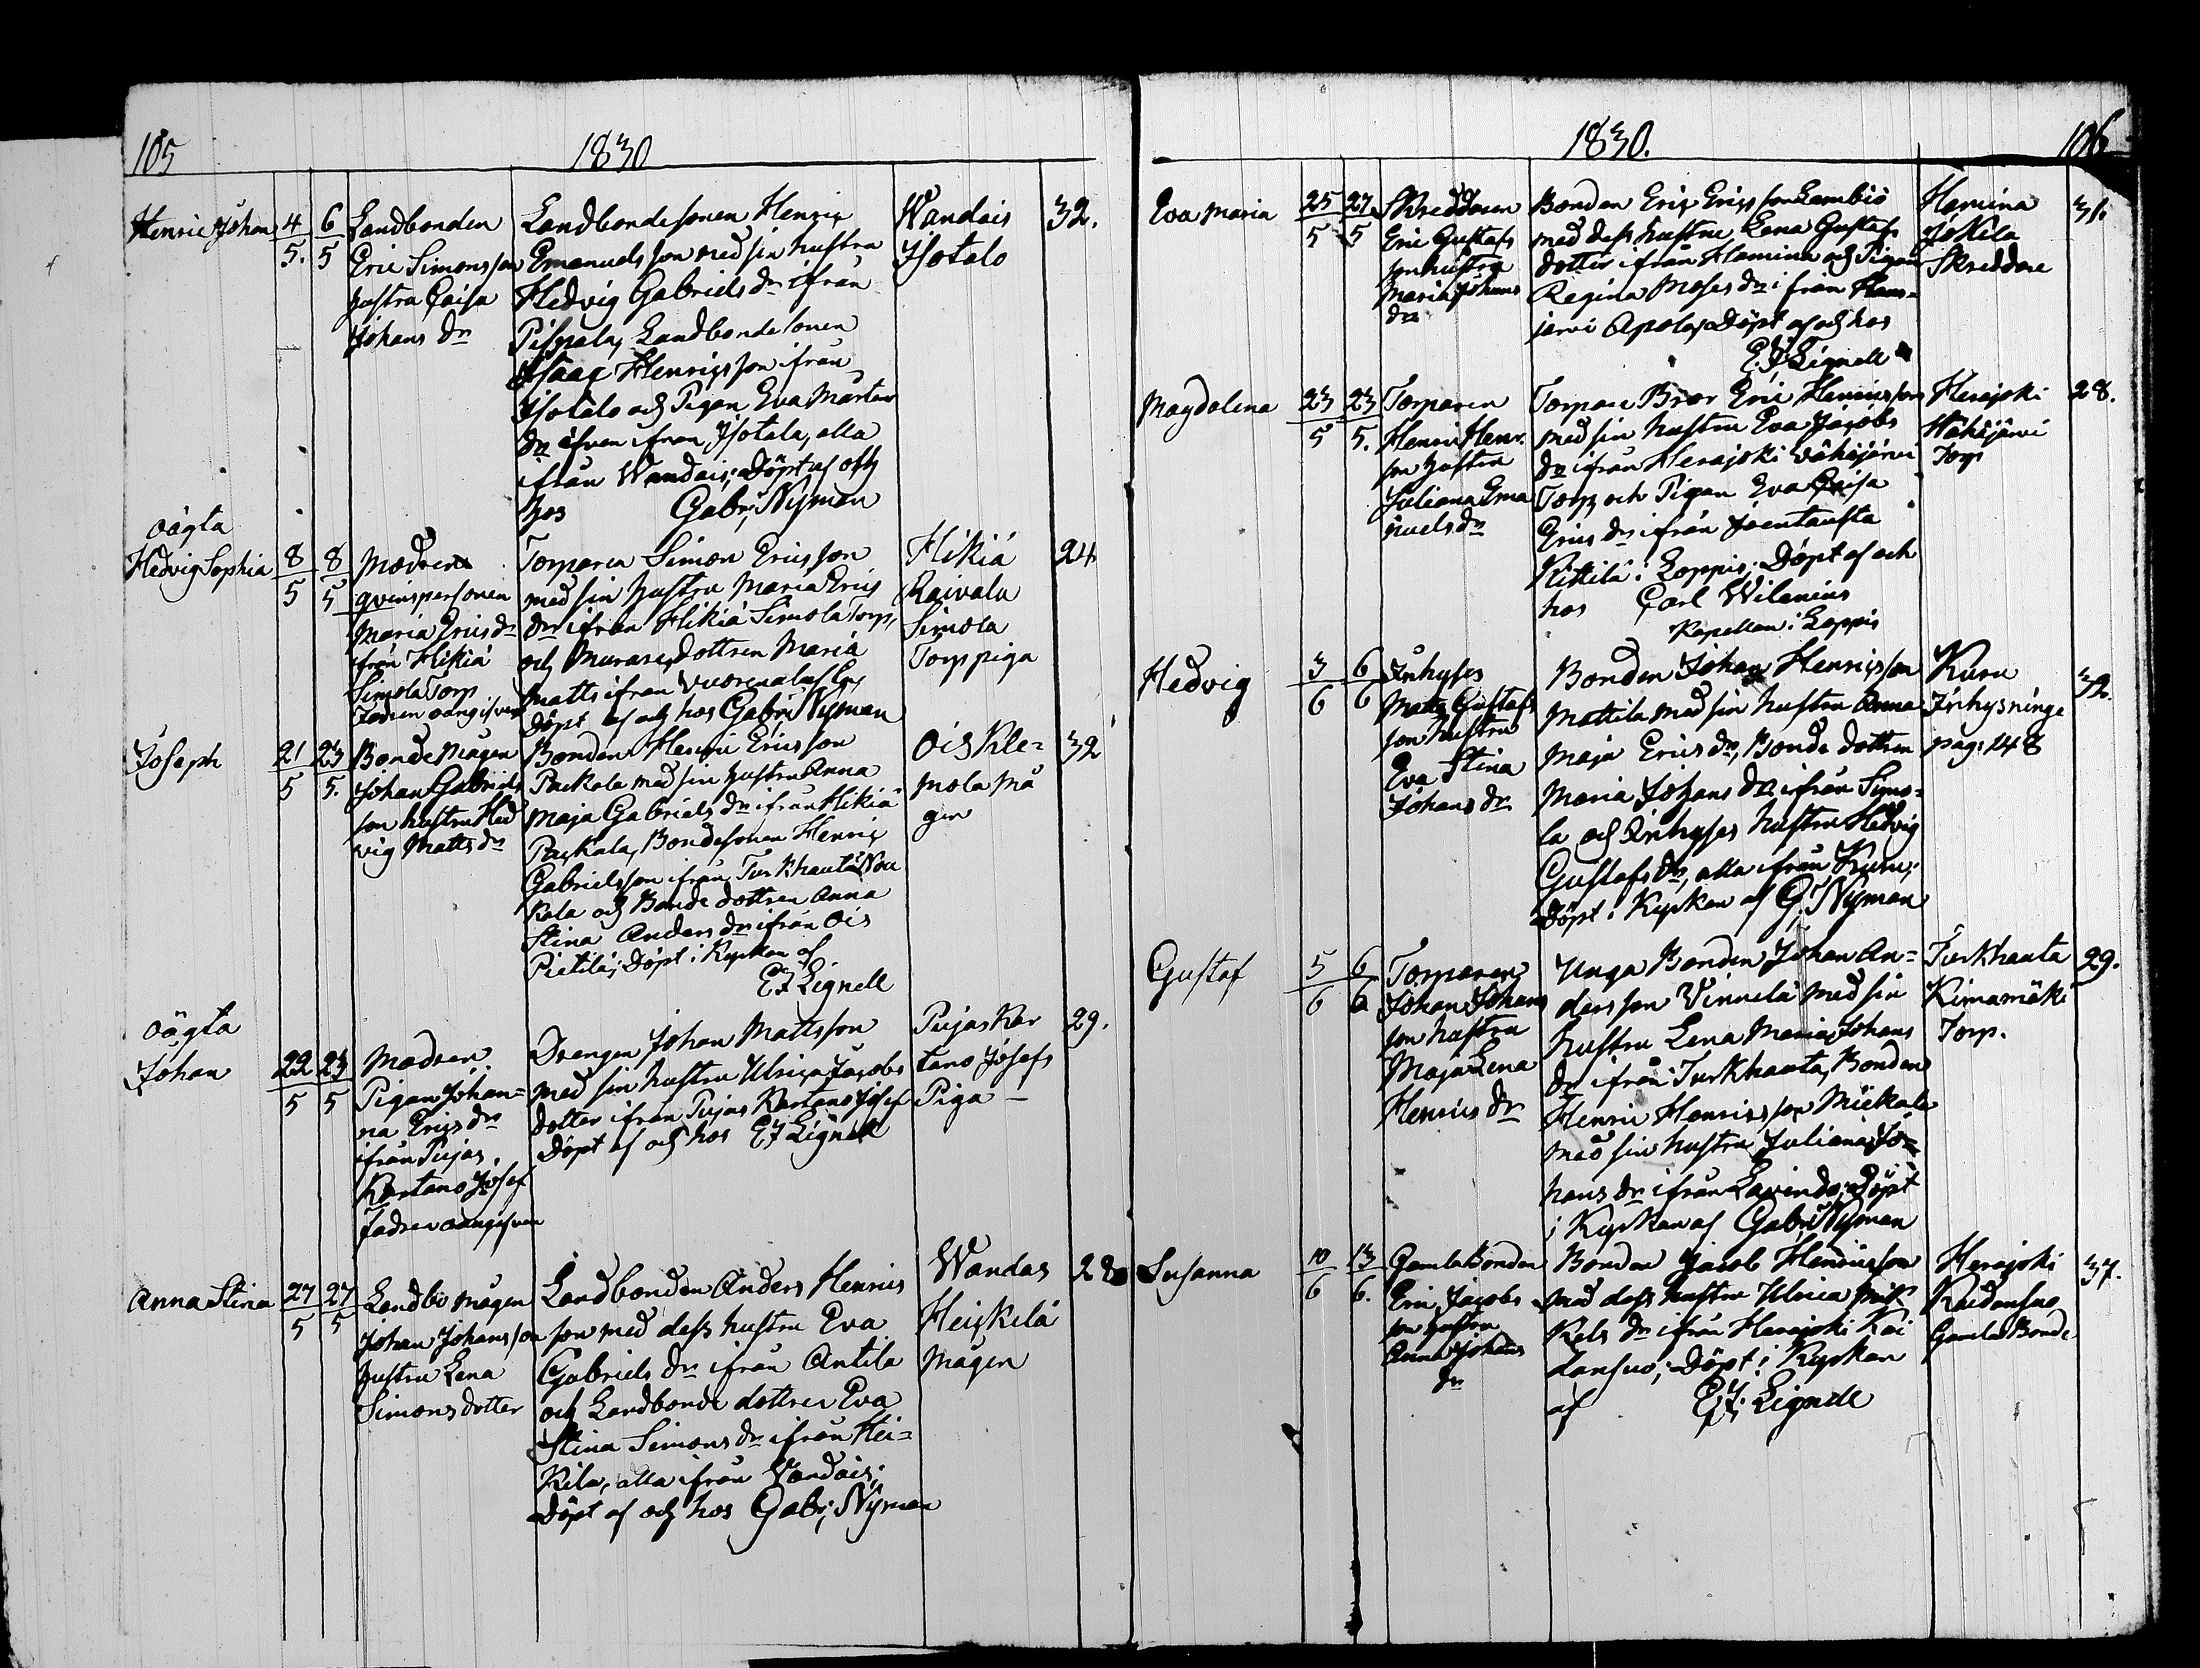 105
1830
Henric Johan 4/5. 6/5
Landbonden
Eric Simonsson
hustra Caisa
Johans dr
Landbondesonen Henric
Emanuelsson med sin hustra
Hedvig Gabriels dr ifrån
Pispala, Landbondesonen
Isaac Henricsson ifrån
Isotalo och Pigan Eva Mårtens
dr ifrån Isotala, alla
ifrån Wandais; Döpt af och
hos Gabr; Nyman
Wandais
Isotalo
32.
oägta
Hedvig Sophia 8/5 8/5
Modren
qvinspersonen
Maria Erics dr
ifrån Hikiä
Simola Torp
Fadren oangifven
Torparen Simon Ericsson
med sin hustru Maria Erics
dr ifrån Hikiä Simola Torp,
och Murare dottren Maria
Matts ifrån
Döpt af och hos Gabr: Nyman
Hikiä
Raivala
Simola
Torp piga
24
Joseph 21/5 23/5.
Bonde Mågen
Johan Gabriels
son hustru Hed
vig Matts dr
Bonden Henric Ericsson
Packala med sin hustru Anna
Maja Gabriels dr ifrån Hikiä
Packala, Bondesonen Henric
Gabrielsson ifrån Turkhauta Nou
kola och Bonde dottren Anna
Stina Anders dr ifrån Ois
Pietilä; Döpt i Kyrkan af
EJ Lignell
Ois Kle=
mola Må
gen
32
oägta
Johan 22/5 23/5
Modren
Pigan Johan=
na Erics dr
ifrån Pujas,
Kartano Josef
Fadren oangifven
Drengen Johan Mattsson
med sin hustru Ulrica Jacobs
dotter ifrån Pujas Kartano Josef
Döpt af och hos EJ Lignell
Pujas Kar
tano Josefs
Piga –
29.
Anna Stina 27/5 27/5
Landbo mågen
Johan Johansson
hustru Lena
Simons dotter
Landbonden Anders Henrics
son med dess hustru Eva
Gabriels dr ifrån Antila
och Landbonde dottren Eva
Stina Simons dr ifrån Hei=
kilä, alla ifrån Vandais;
Döpt af och hos Gabr; Nyman
Wandas
Heickilä
Mågen
1830.
106
Eva Maria 25/5 27/5
Skreddaren
Eric Gustafs
son hustru
Maria Johans
dr
Bonden Eric Ericsson Lambiö
med dess hustru Lena Gustafs
dotter ifrån Hamina och Pigan
Regina Moses dr ifrån Haus=
jervi Apola, Döpt af och hos
E.J. Lignell
Hamina
Jokila
Skreddare
31.
Magdalena 23/5 23/5.
Torparen
Henric Henr:
son hustru
Juliana Ema
nuels dr
Torpare Bror Eric Henricsson
med sin hustru Eva Jacobs
dr ifrån Herajoki Vähäjärvi
Torp och Pigan Eva Caisa
Erics dr ifrån Joentausta
Kittilä i Loppis; Döpt af och
hos Carl Wilenius
Kapellan i Loppis
Herajoki
Vähäjärvi
Torp
28.
Hedvig 3/6 6/6
Inhyses
Matts Gustafs
son hustru
Eva Stina
Johans dr
Bonden Johan Henricsson
Mattila med sin hustru Anna
Maja Erics dr, Bonde dottren
Maria Johans dr ifrån Simo=
la och Inhyses hustru Hedvig
Gustafs dr, alla ifrån Kuru;
Döpt i Kyrkan af G. Nyman
Kuru
Inhysninge
pag: 148
32.
Gustaf 5/6 6/6
Torparen
Johan Johans
son hustru
Maja Lena
Henrics dr
Unga Bonden Johan An=
dersson Vinnelä med sin
hustru Lena Maria Johans
dr ifrån Turkhauta, Bonden
Henric Henricsson Mickale
med sin hustru Juliana Jo=
hans dr ifrån Lavinda; Döpt
i Kyrkan af Gabr: Nyman
Turkhauta
Kimamäki
Torp.
29.
Susanna 10/6 13/6.
Gamla Bonden
Eric Jacobs
son hustru
Anna Johans
dr
Bonden Jacob Henricsson
med dess hustru Ulrica Mic
kels dr ifrån Herajoki Koi
dansuo; Döpt i Kyrkan
af E.J. Lignell
Herajoki
Koidansuo
Gamla Bonde
37.